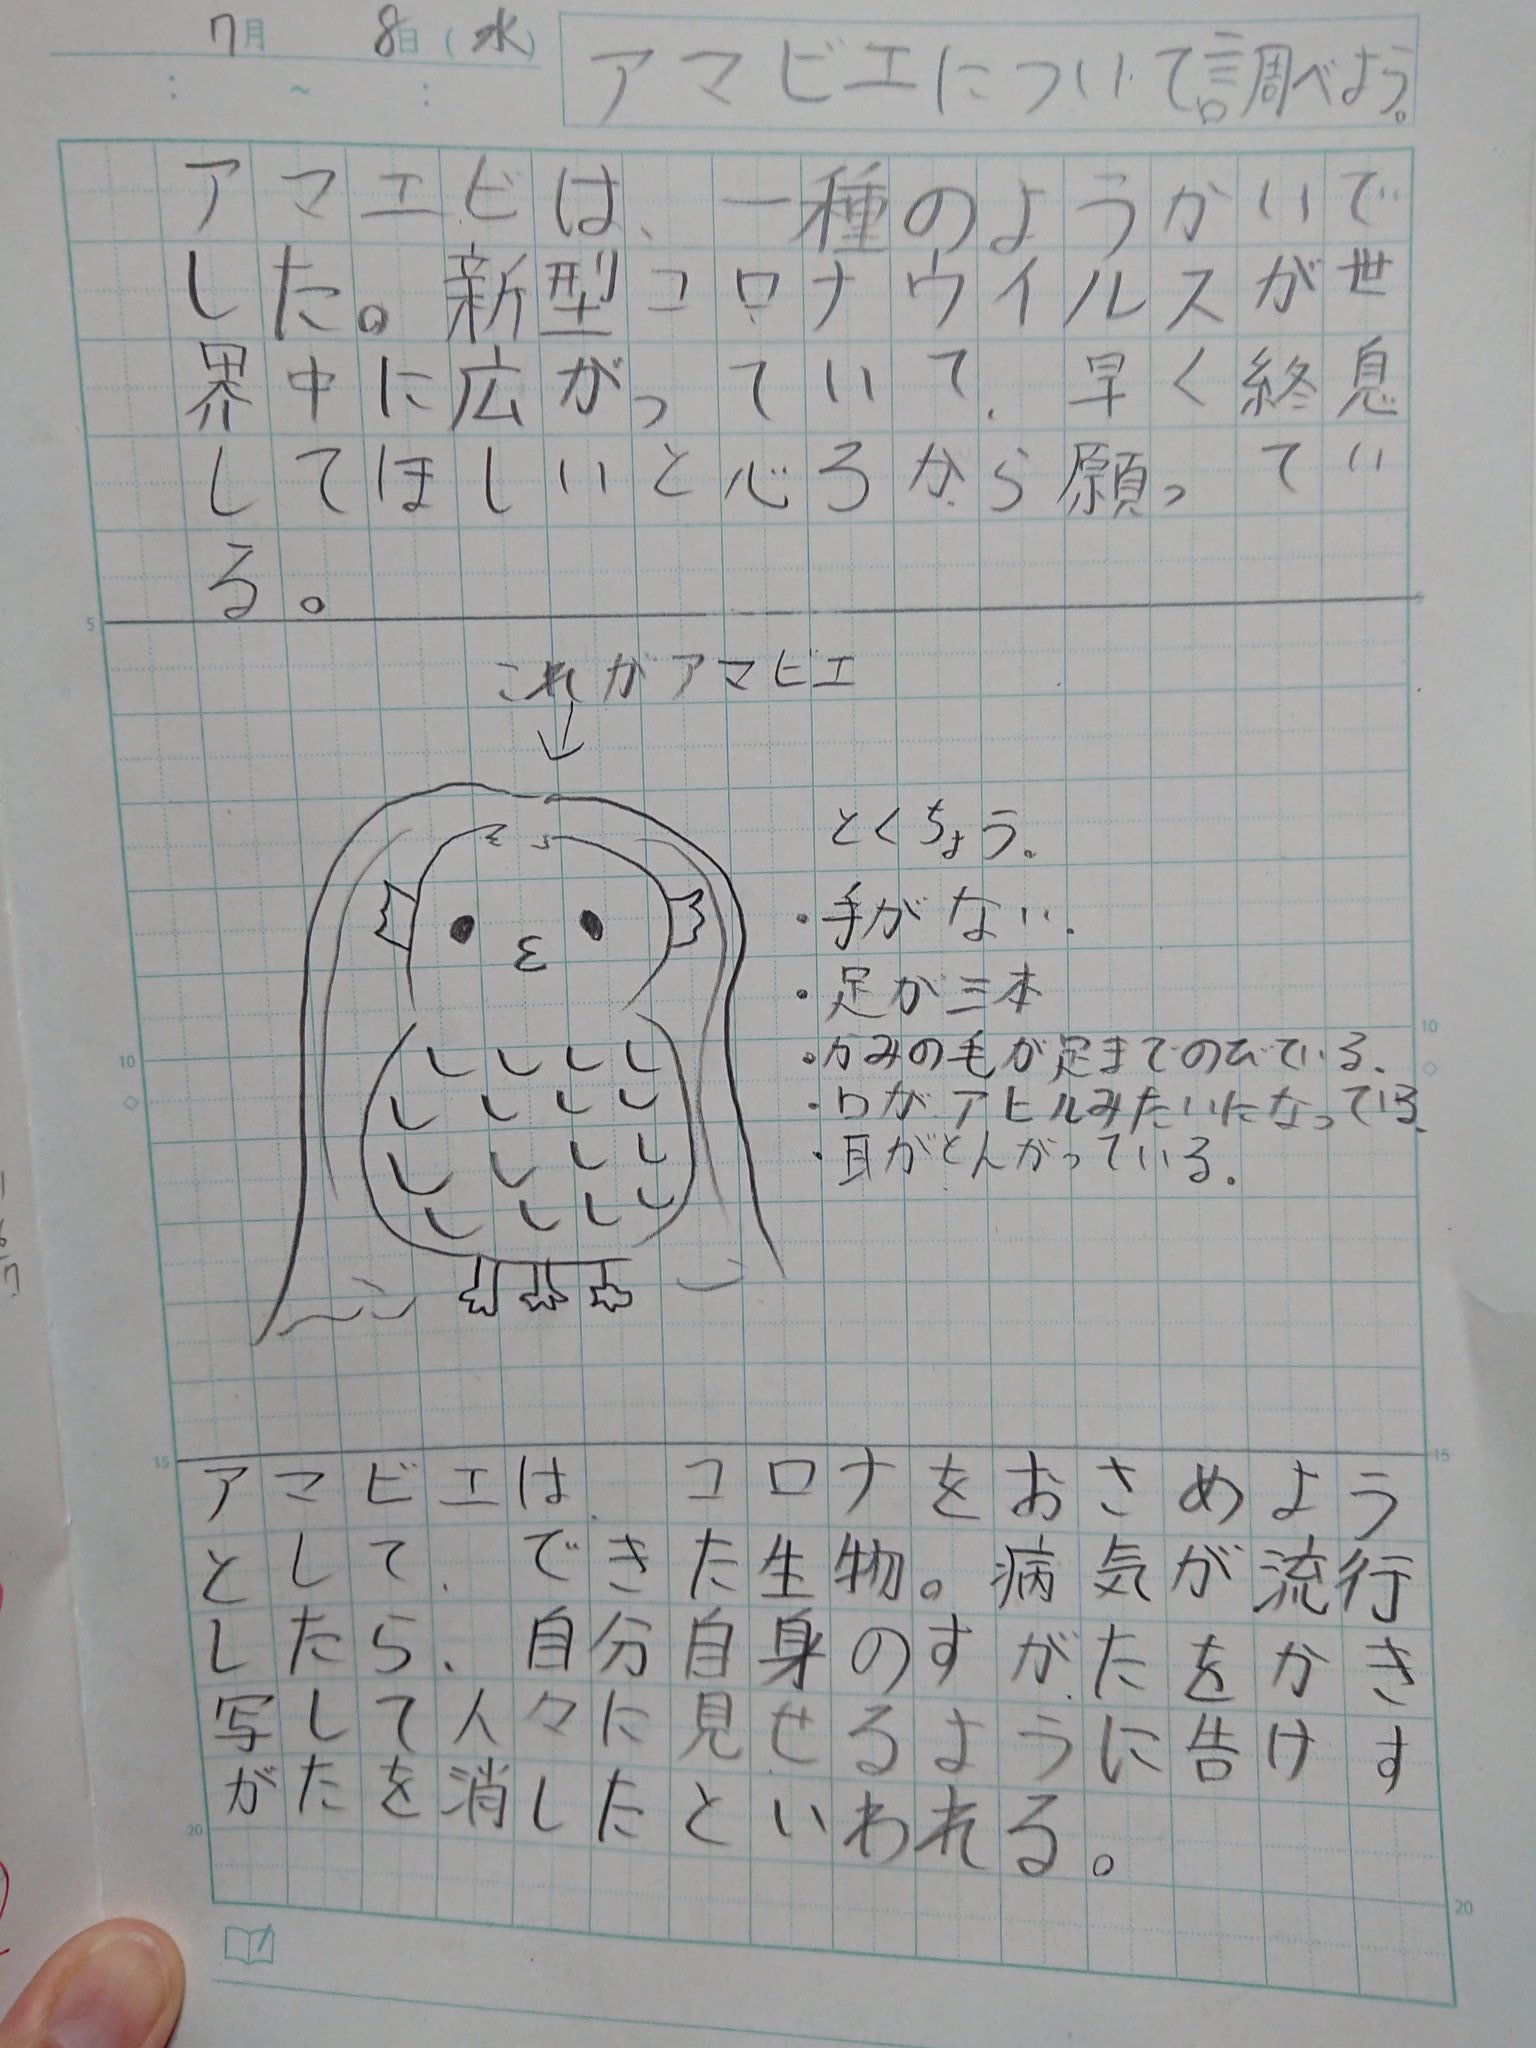 7月 8日(水)
アマビエについて調べよう。
アマエビは、一種のようかいで
した。新型コロナウイルスが世
界中に広がっていて、早く終息
してほしいと心ろから願ってい
る。
5
5
これがアマビエ
とくちょう。
・手がない。
・足が三本
・かみの毛が足までのびている。
・口がアヒルみたいになっている。
・耳がとんがっている。
10
10
15
15
アマビエは、コロナをおさめよう
として、できた生物。病気が流行
したら、自分自身のすがたをかき
写して人々に見せるように告けす
がたを消したといわれる。
20
20